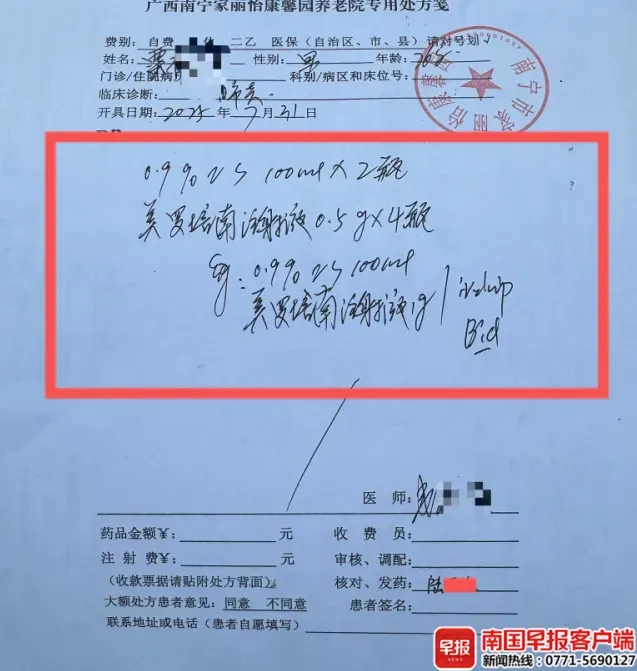 广西南宁家丽怡康馨园养老院专用处方笺
费别：自费 二乙 医保（自治区、市、县）请对号划√
姓名： 性别：男 年龄：
门诊/住院病历 科别/病区和床位号：
临床诊断：肺炎
开具日期：2025年7月31日
0.9% NS 100ml × 2瓶
美罗培南注射液 0.5g×4瓶
Sig: 0.9% NS 100ml
美罗培南注射液 1g
ivdrip
Bid
医 师：
药品金额￥： 元 收 费 员：
注 射 费￥： 元 审核、调配：
（收款票据请贴附处方背面） 核对、发药：陆
大额处方患者意见：同意 不同意 患者签名：
联系地址或电话（患者自愿填写）
早报 南国早报客户端
新闻热线：0771-5690127